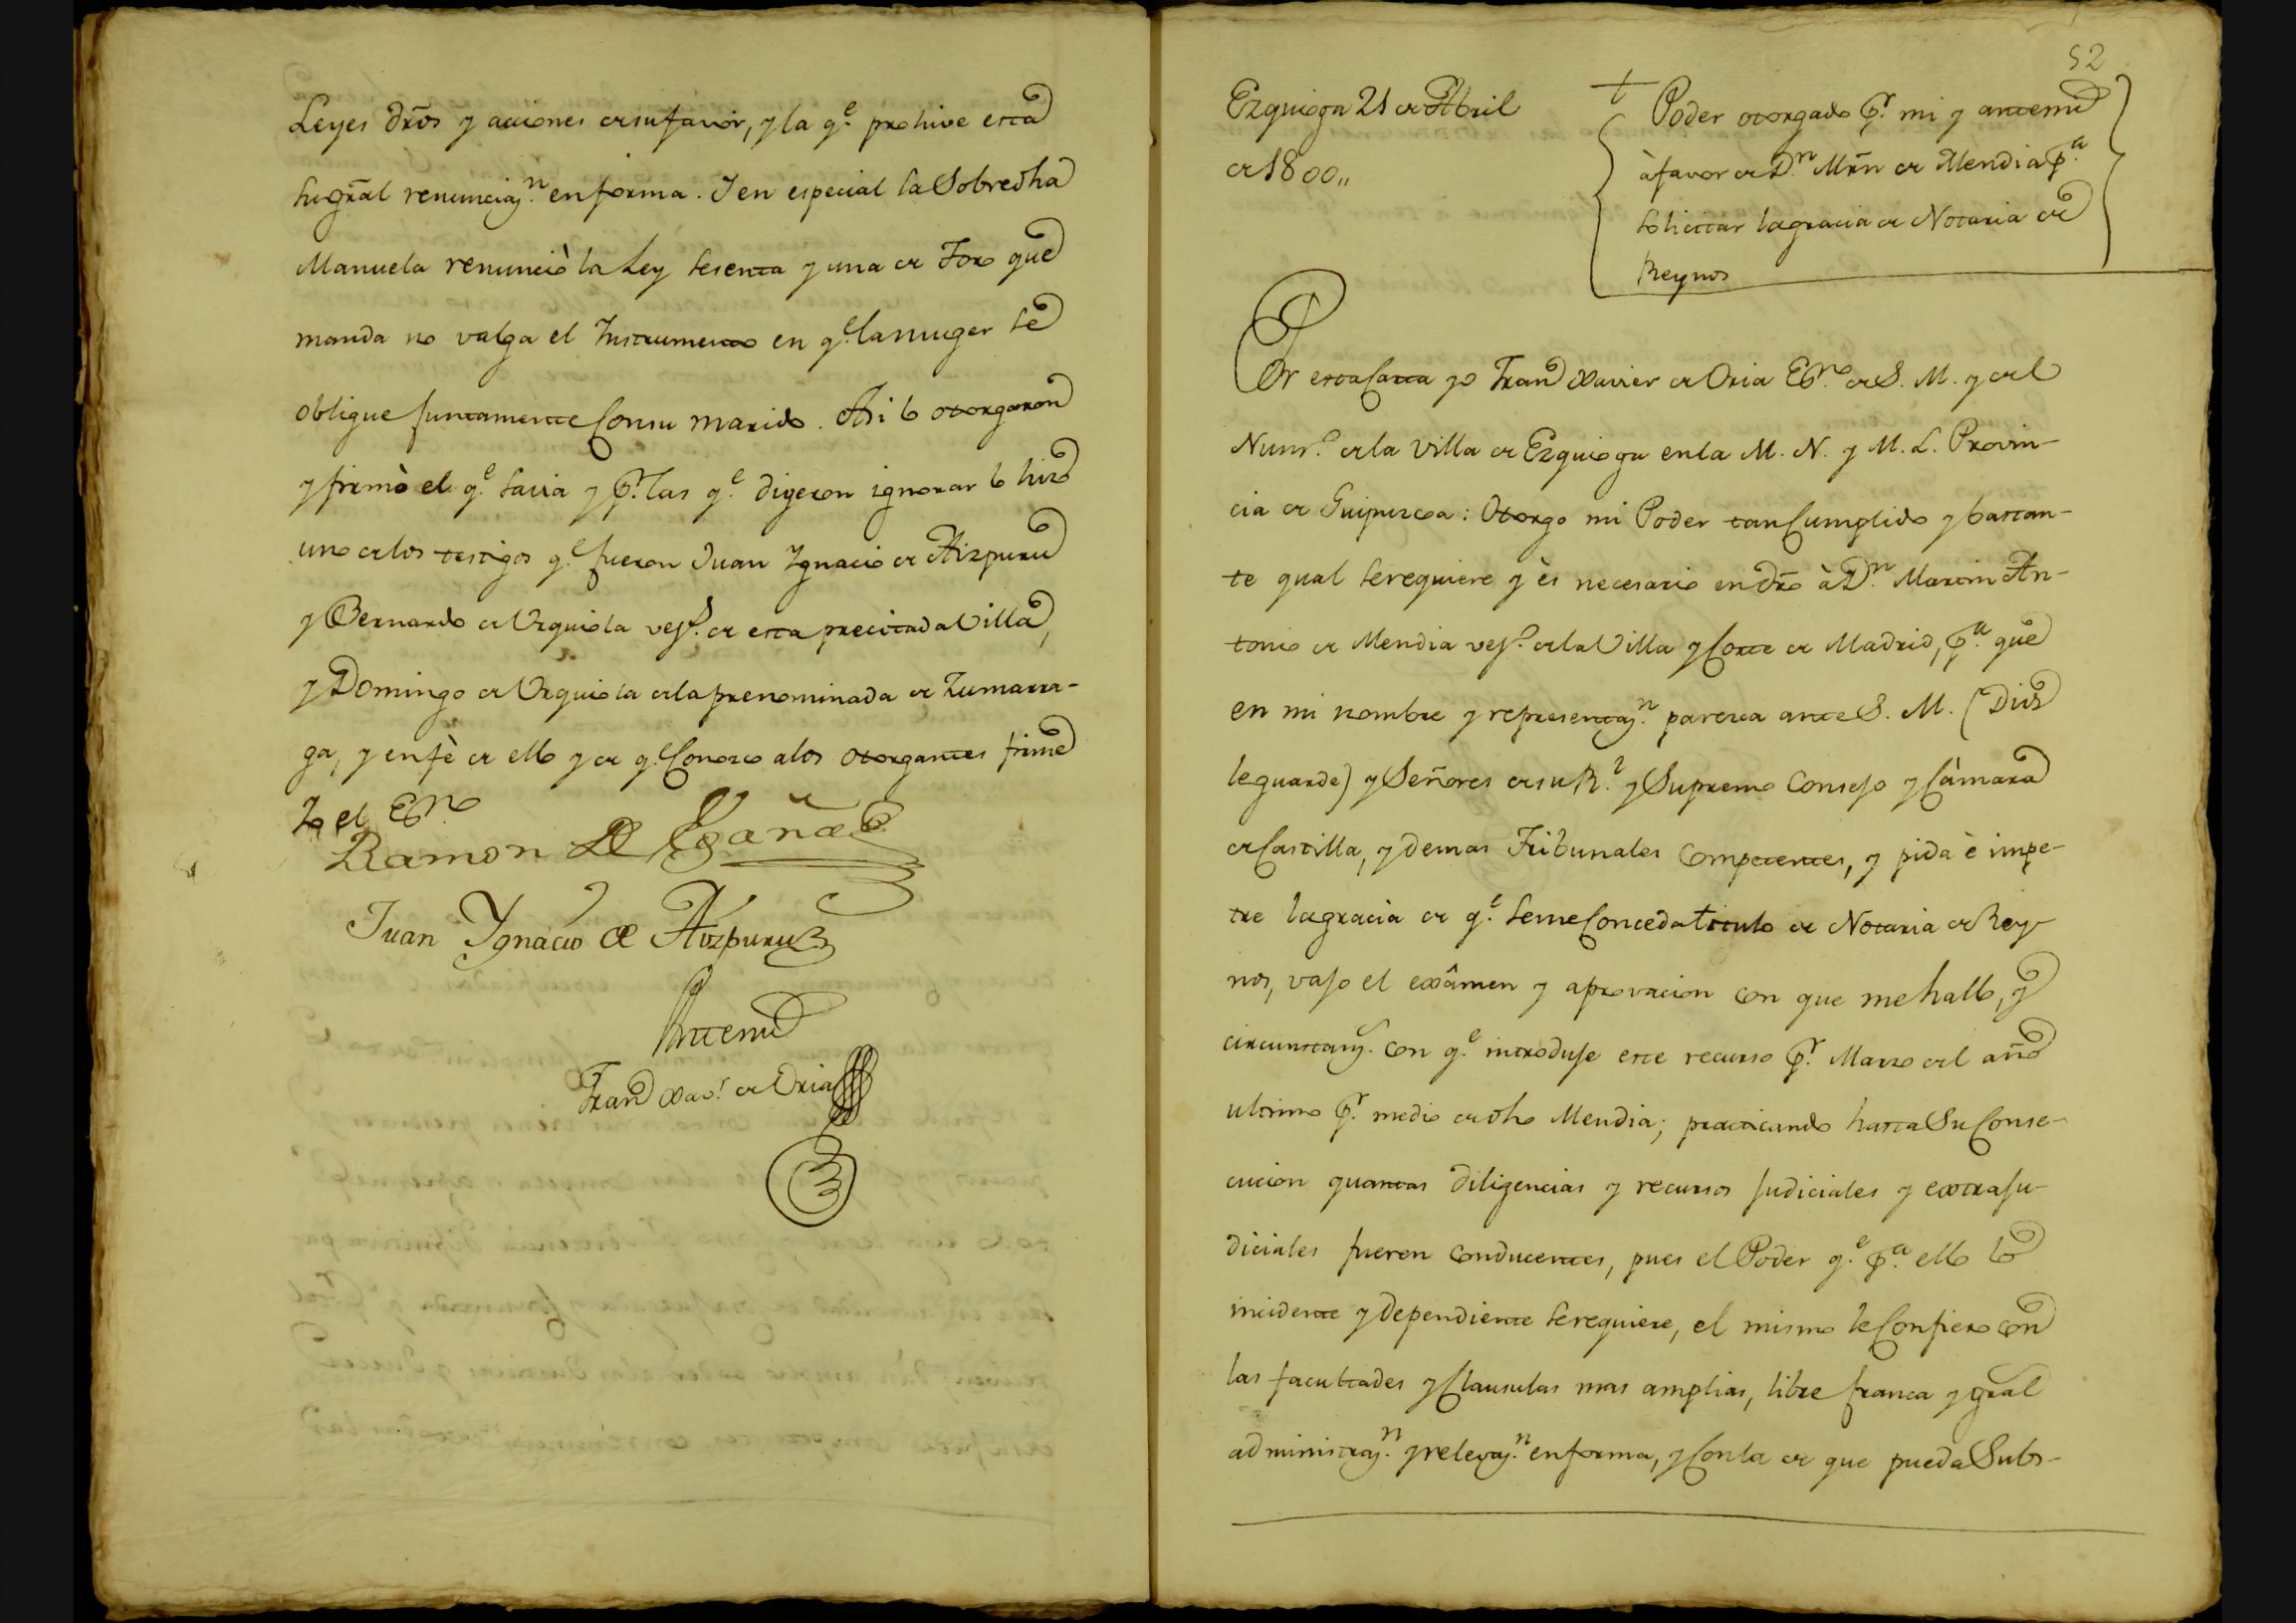 Leyes dr̃os y acciones de su favor, y la q.e prohive esta
su gr̃al renunciaz.n en forma. Y en especial la Sobredha
Manuela renunciò la Ley sesenta y una de Toro que
manda no valga el Instrumento en q.e la muger se
obligue juntamente con su marido. Asi lo otorgaron
y firmò el q.e savia y p.r las q.e digeron ignorar lo hizo
uno de los testigos q.e fueron Juan Ygnacio de Aizpuru
y Bernardo de Urquiola vez.s de esta precitada Villa,
y Domingo de Urquiola de la prenominada de Zumarra-
ga, y en fè de ello y de q.e Conozco a los otorgantes firmè
Yo el Es.no
Ramon de Egaña
Juan Ygnacio de Aizpuru
Antemi
Fran.co Xav.r de Oria
52
Ezquioga 21 de Abril
de 1800,,
Poder otorgado p.r mi y antemi
à favor de D.n Mrñ de Mendia p.a
solicitar la gracia de Notaria de
Reynos
Por esta Carta yo Fran.co Xavier de Oria Es.no de S. M. y del
Num.o de la Villa de Ezquioga en la M. N. y M. L. Provin-
cia de Guipuzcoa: Otorgo mi Poder tan Cumplido y bastan-
te qual se requiere y ès necesario en dr̃o à D.n Martin An-
tonio de Mendia vez.o de la Villa y Corte de Madrid, p.a que
en mi nombre y representaz.n parezca ante S. M. (Dios
le guarde) y Señores de su R.l y Supremo Consejo y Càmara
de Castilla, y demas Tribunales Competentes, y pida è impe-
tre la gracia de q.e se me Conceda titulo de Notaria de Rey-
nos, vajo el exâmen y aprovacion con que me hallo, y
circunstanz.s con q.e introduje este recurso p.r Marzo del año
ultimo p.r medio de dho Mendia; practicando hasta Su Conse-
cucion quantas diligencias y recursos judiciales y extraju-
diciales fueren conducentes, pues el Poder q.e p.a ello lo
incidente y dependiente se requiere, el mismo le Confiero con
las facultades y Clausulas mas amplias, libre franca y gr̃al
administraz.n y relevaz.n en forma, y Con la de que pueda Subs-